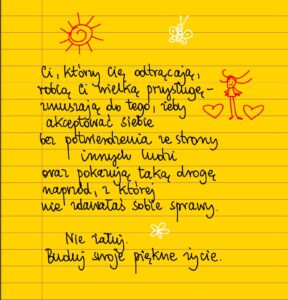 Ci, którzy Cię odtrącają,
robią Ci wielką przysługę -
zmuszają do tego, żeby
akceptować siebie
bez potwierdzenia ze strony
innych ludzi
oraz pokazują taką drogę
naprzód, z której
nie zdawałaś sobie sprawy.
Nie żałuj.
Buduj swoje piękne życie.